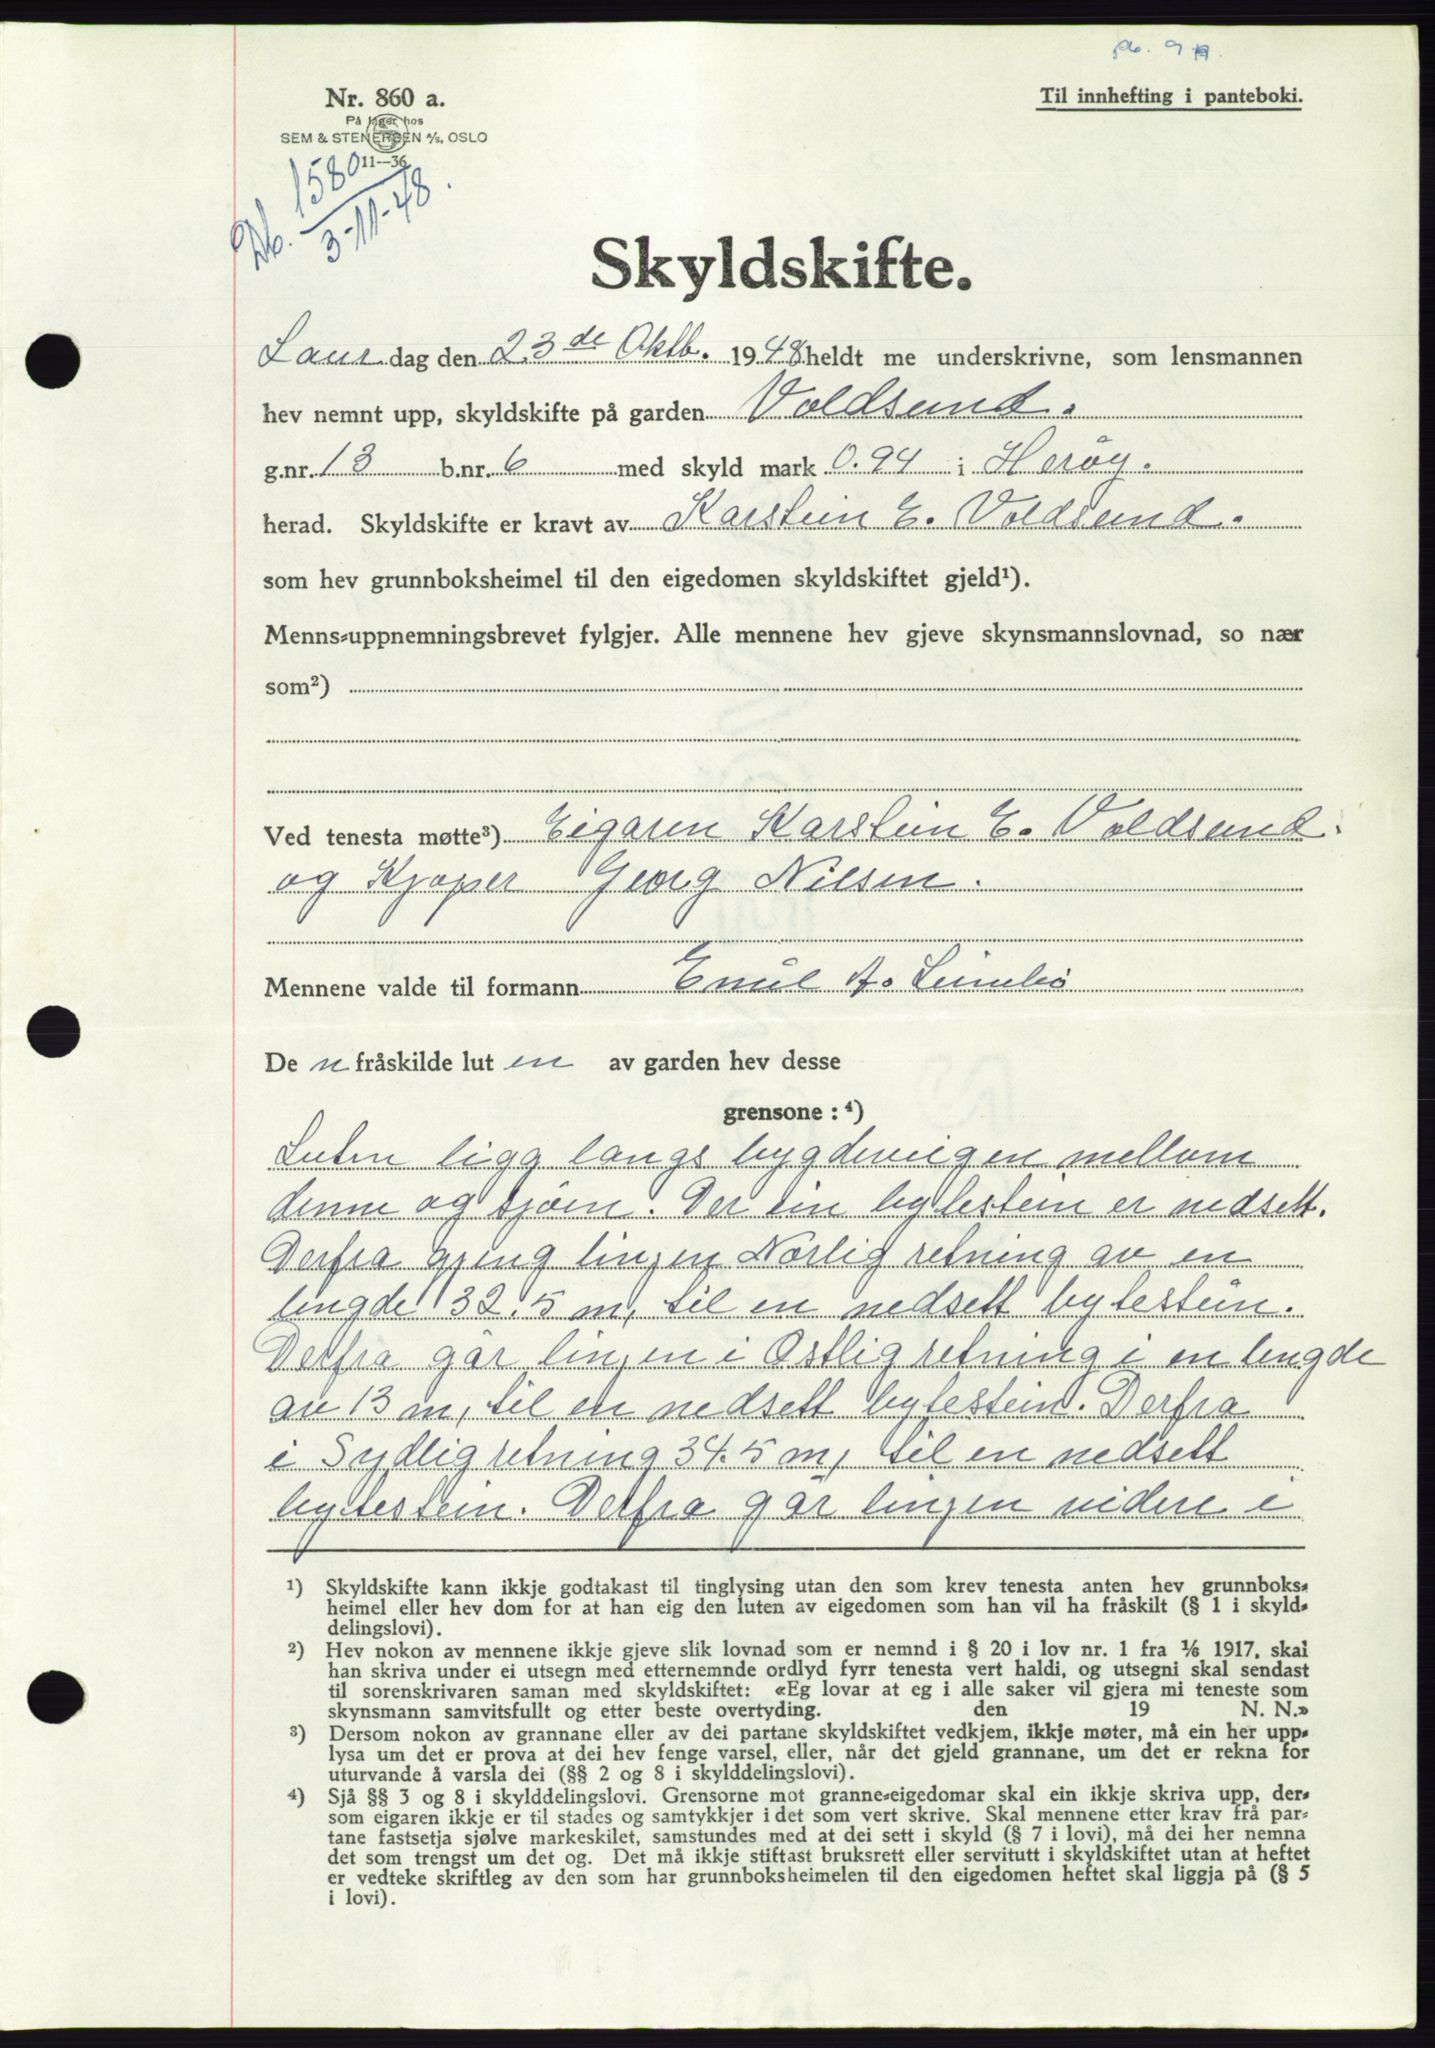 Nr. 860 a.
På lager hos
SEM & STENERSEN A/S, OSLO
11—36
Til innhefting i panteboki.
Db. 1580
3-11-48.
Skyldskifte.
Laur dag den 23de Oktb. 1948 heldt me underskrivne, som lensmannen
hev nemnt upp, skyldskifte på garden Voldsund.
g.nr. 13 b.nr. 6 med skyld mark 0.94 i Herøy.
herad. Skyldskifte er kravt av Karstein E. Voldsund.
som hev grunnboksheimel til den eigedomen skyldskiftet gjeld¹).
Menns-uppnemningsbrevet fylgjer. Alle mennene hev gjeve skynsmannslovnad, so nær
som²)
Ved tenesta møtte³) Eigaren Karstein E. Voldsund.
og Kjøper Georg Nilsen.
Mennene valde til formann Emil A.
De n fråskilde lut en av garden hev desse
grensone:⁴)
Luten ligg langs bygdeveigen mellom
denne og sjöen. Der ein bytestein er nedsett.
Derfra gjeng linjen Nørlig retning av en
lengde 32.5 m, til en nedsett bytestein.
Derfra går linjen i Østlig retning i en lengde
av 13 m, til en nedsett bytestein. Derfra
i Sydlig retning 34.5 m, til en nedsett
bytestein. Derfra går linjen videre i
¹) Skyldskifte kann ikkje godtakast til tinglysing utan den som krev tenesta anten hev grunnboks-
heimel eller hev dom for at han eig den luten av eigedomen som han vil ha fråskilt (§ 1 i skyld-
delingslovi).
²) Hev nokon av mennene ikkje gjeve slik lovnad som er nemnd i § 20 i lov nr. 1 fra 1/6 1917, skal
han skriva under ei utsegn med etternemnde ordlyd fyrr tenesta vert haldi, og utsegni skal sendast
til sorenskrivaren saman med skyldskiftet: «Eg lovar at eg i alle saker vil gjera mi teneste som
skynsmann samvitsfullt og etter beste overtyding. den 19 N. N.»
³) Dersom nokon av grannane eller av dei partane skyldskiftet vedkjem, ikkje møter, må ein her upp-
lysa um det er prova at dei hev fenge varsel, eller, når det gjeld grannane, um det er rekna for
uturvande å varsla dei (§§ 2 og 8 i skylddelingslovi).
⁴) Sjå §§ 3 og 8 i skylddelingslovi. Grensorne mot granne-eigedomar skal ein ikkje skriva upp, der-
som eigaren ikkje er til stades og samtykkjer i det som vert skrive. Skal mennene etter krav frå par-
tane fastsetja sjølve markeskilet, samstundes med at dei sett i skyld (§ 7 i lovi), må dei her nemna
det som trengst um det og. Det må ikkje stiftast bruksrett eller servitutt i skyldskiftet utan at heftet
er vedteke skriftleg av den som har grunnboksheimelen til den eigedomen heftet skal liggja på (§ 5
i lovi).